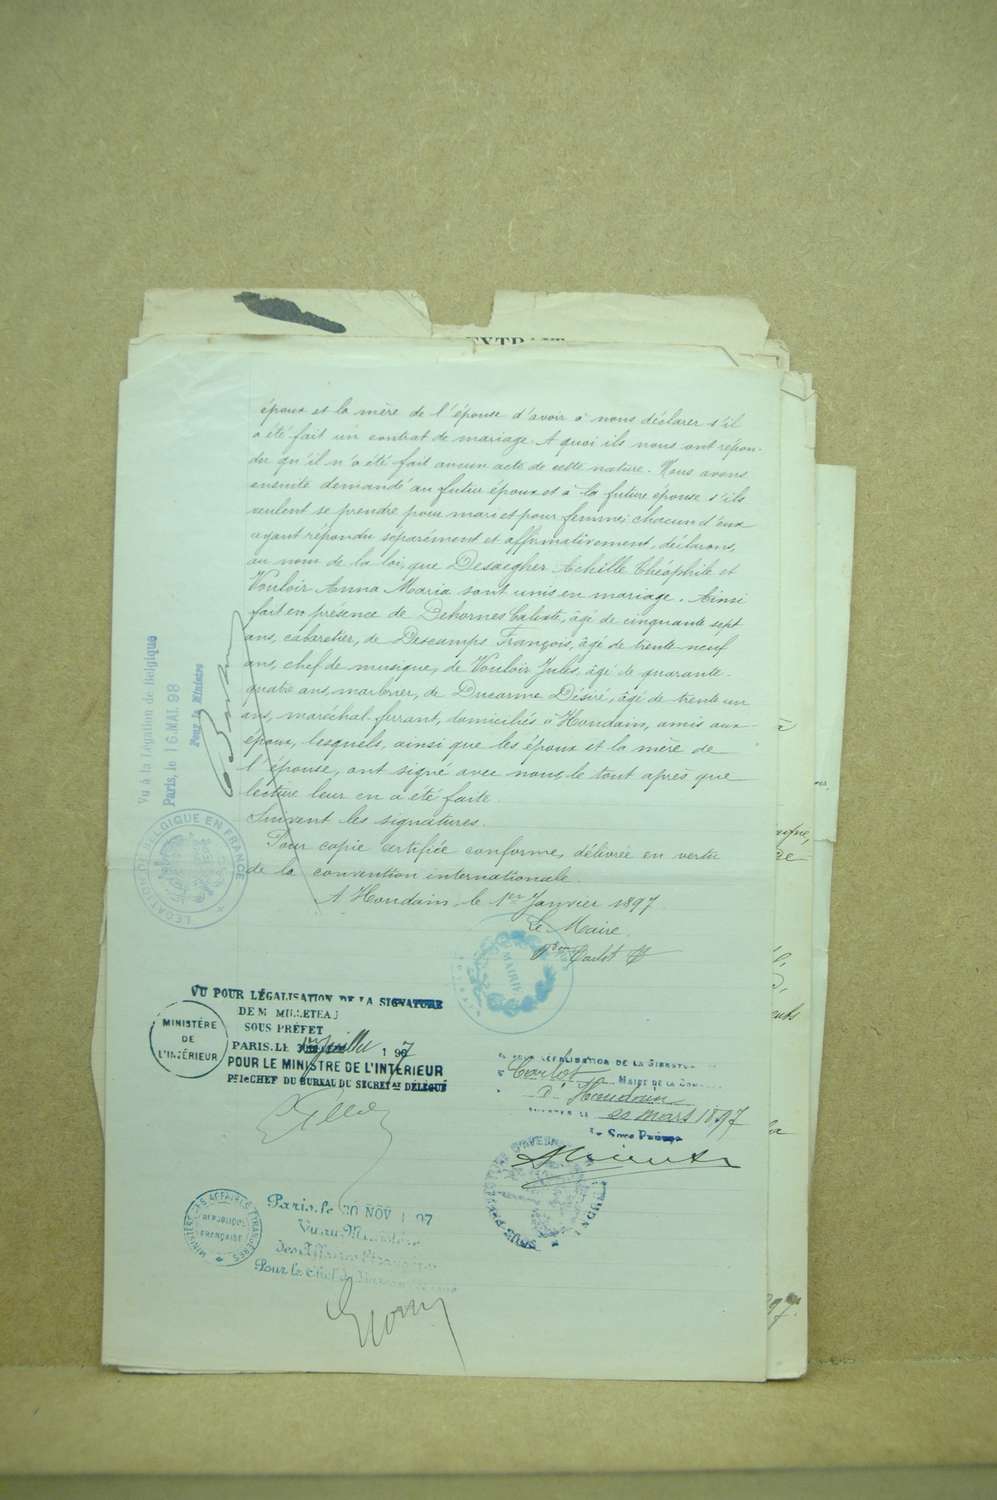 EXTRAIT
époux et la mère de l'épouse d'avoir à nous déclarer s'il
a été fait un contrat de mariage. A quoi ils nous ont répon-
du qu'il n'a été fait aucun acte de cette nature. Nous avons
ensuite demandé au futur époux et à la future épouse s'ils
veulent se prendre pour mari et pour femme; chacun d'eux
ayant répondu séparément et affirmativement, déclarons,
au nom de la loi, que Desaegher Achille Théophile et
Vouloir Anna Maria sont unis en mariage. Ainsi
fait en présence de Dehornes Caliste, âgé de cinquante sept
ans, cabaretier, de Descamps François, âgé de trente-neuf
ans, chef de musique, de Vouloir Jules, âgé de quarante-
quatre ans, marbrier, de Ducarme Désiré, âgé de trente un
ans, maréchal ferrant, domiciliés à Houdain, amis aux
époux, lesquels, ainsi que les époux et la mère de
l'épouse, ont signé avec nous le tout après que
lecture leur en a été faite.
Suivent les signatures.
Pour copie certifiée conforme, délivrée en vertu
de la convention internationale.
A Houdain, le 1er Janvier 1897
Le Maire,
Carlot
MAIRIE
Vu à la Légation de Belgique
Paris, le 16 MAI. 98
Pour le Ministre
LÉGATION DE BELGIQUE EN FRANCE
VU POUR LÉGALISATION DE LA SIGNATURE
DE M MILLETEAU
SOUS PRÉFET
PARIS. LE juillet 1897
POUR LE MINISTRE DE L'INTÉRIEUR
Pr le CHEF DU BUREAU DU SECRÉTat DÉLÉGUÉ
MINISTÈRE
DE
L'INTÉRIEUR
LÉGALISATION DE LA SIGNATURE
Carlot MAIRE DE LA COM
d'Houdain
LE 20 mars 1897
Le Sous Préfet
SOUS PRÉFECTURE D'AVESNES
MINISTÈRE DES AFFAIRES ÉTRANGÈRES
RÉPUBLIQUE
FRANÇAISE
Paris, le 30 NOV 1897
Vu au Ministère
des Affaires Étrangères
Pour le Chef de